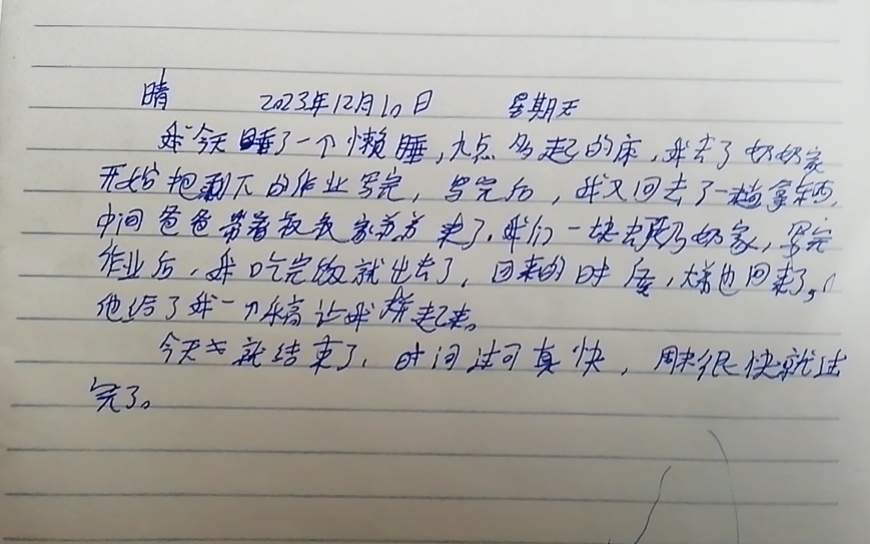 晴 2023年12月10日 星期天
我今天睡了一个懒睡,九点多起的床,我去了奶奶家
开始把剩下的作业写完,写完后,我又回去了一趟拿东西,
中间爸爸带着叔叔家弟弟来了,我们一块去奶奶家,写完
作业后,我吃完饭就出去了,回来的时候,大爷也回来了,
他给了我一刀让我起来。
今天就结束了,时间过可真快,周末很快就过
完了。